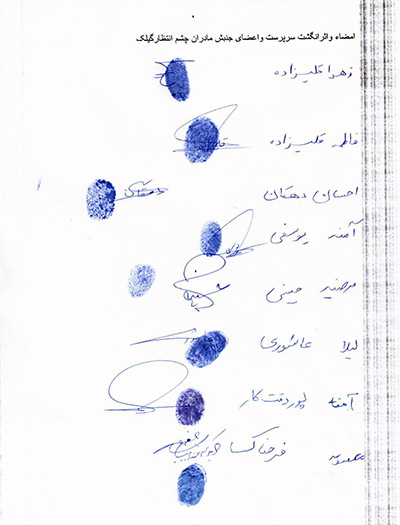 امضاء واثرانگشت سرپرست واعضای جنبش مادران چشم انتظارگیلک
زهرا قلیزاده
فاطمه قلیزاده
احسان دهقان
آمنه یوسفی
مرضیه حسینی
لیلا عاشوری
آمنه پوردقت کار
معصومه فرخناکسا